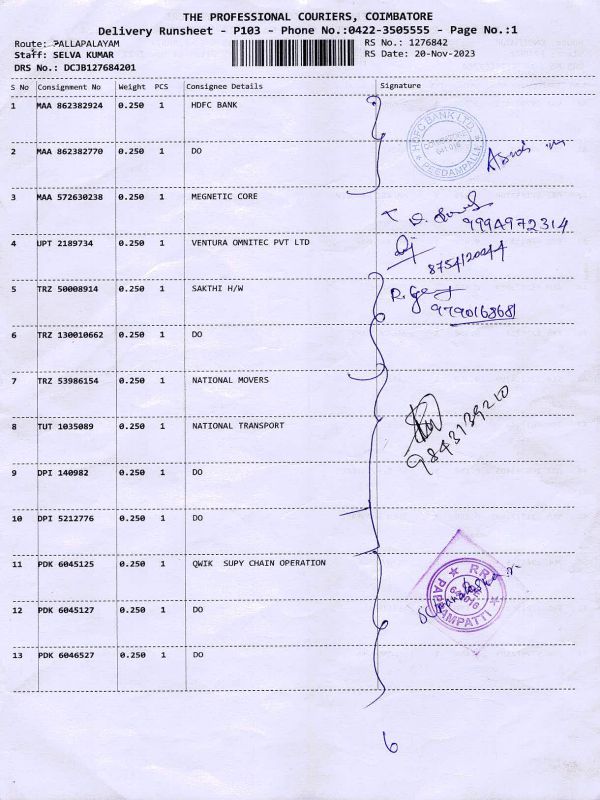 THE PROFESSIONAL COURIERS, COIMBATORE
Delivery Runsheet - P103 - Phone No.:0422-3505555 - Page No.:1
Route: PALLAPALAYAM RS No.: 1276842
Staff: SELVA KUMAR RS Date: 20-Nov-2023
DRS No.: DCJB127684201
S No Consignment No Weight PCS Consignee Details Signature
1 MAA 862382924 0.250 1 HDFC BANK
HDFC BANK LTD.
COIMBATORE
641 016
PEEDAMPALLI
2 MAA 862382770 0.250 1 DO
3 MAA 572630238 0.250 1 MEGNETIC CORE
9994972314
4 UPT 2189734 0.250 1 VENTURA OMNITEC PVT LTD
8754120244
5 TRZ 50008914 0.250 1 SAKTHI H/W
9790168681
6 TRZ 130010662 0.250 1 DO
7 TRZ 53986154 0.250 1 NATIONAL MOVERS
8 TUT 1035089 0.250 1 NATIONAL TRANSPORT
9843139210
9 DPI 140982 0.250 1 DO
10 DPI 5212776 0.250 1 DO
11 PDK 6045125 0.250 1 QWIK SUPY CHAIN OPERATION
12 PDK 6045127 0.250 1 DO
13 PDK 6046527 0.250 1 DO
6